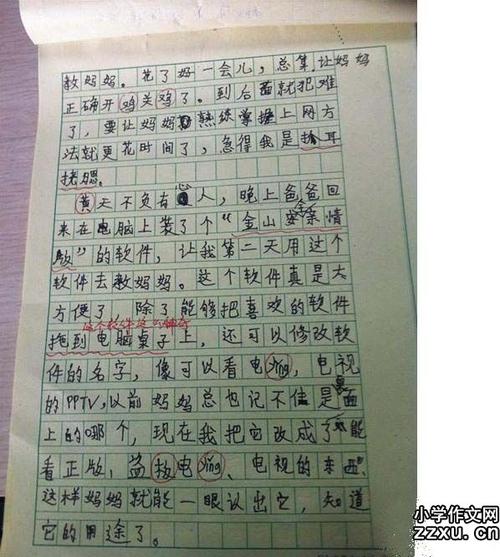 教妈妈。花了好一会儿，总集让妈妈
正确开鸡关鸡了。到后面就犯难
了，要让妈妈熟练掌握上网方
法就更花时间了，急得我是抓耳
挠腮。
黄天不负有心人，晚上爸爸回
来在电脑上装了个“金山安全亲情
版”的软件，让我第二天用这个
软件去教妈妈。这个软件真是太
方便了，除了能够把喜欢的软件
这个软件这么神奇
拖到电脑桌子上，还可以修改软
件的名字，像可以看电ying，电视
的PPTV，以前妈妈总也记不住是桌面
上的哪个，现在我把它改成了能
看正版，盗板电ying、电视的东西，
这样妈妈就能一眼认出它，知道
它的用途了。
小学作文网
zzxu.cn